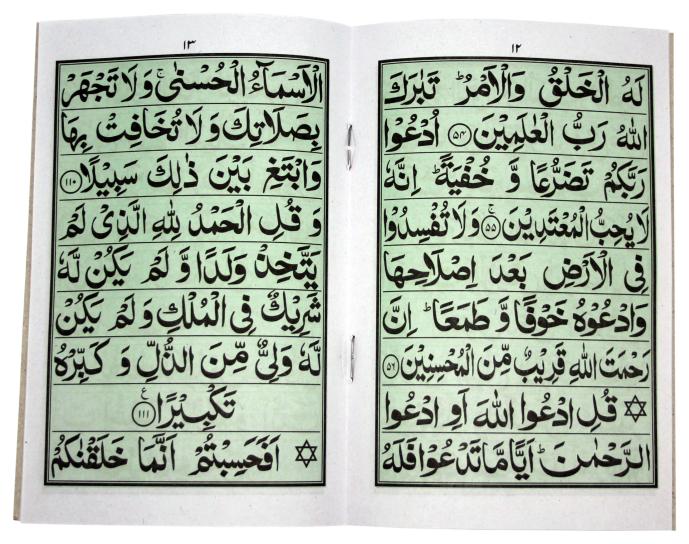 ١٢
لَهُ الْخَلْقُ وَالْاَمْرُ ؕ تَبٰرَكَ
اللهُ رَبُّ الْعٰلَمِيْنَ ﴿۵۴﴾ اُدْعُوْا
رَبَّكُمْ تَضَرُّعًا وَّ خُفْيَةً ؕ اِنَّهٗ
لَا يُحِبُّ الْمُعْتَدِيْنَ ۚ﴿۵۵﴾ وَلَا تُفْسِدُوْا
فِى الْاَرْضِ بَعْدَ اِصْلَاحِهَا
وَادْعُوْهُ خَوْفًا وَّ طَمَعًا ؕ اِنَّ
رَحْمَتَ اللهِ قَرِيْبٌ مِّنَ الْمُحْسِنِيْنَ ﴿۵۶﴾
✡ قُلِ ادْعُوا اللهَ اَوِ ادْعُوا
الرَّحْمٰنَ ؕ اَيًّا مَّا تَدْعُوْا فَلَهُ
١٣
الْاَسْمَآءُ الْحُسْنٰى ۚ وَلَا تَجْهَرْ
بِصَلَاتِكَ وَلَا تُخَافِتْ بِهَا
وَابْتَغِ بَيْنَ ذٰلِكَ سَبِيْلًا ﴿۱۱۰﴾
وَ قُلِ الْحَمْدُ لِلّٰهِ الَّذِىْ لَمْ
يَتَّخِذْ وَلَدًا وَّ لَمْ يَكُنْ لَّهٗ
شَرِيْكٌ فِى الْمُلْكِ وَ لَمْ يَكُنْ
لَّهٗ وَلِىٌّ مِّنَ الذُّلِّ وَ كَبِّرْهُ
تَكْبِيْرًا ﴿۱۱۱﴾ ع
✡ اَفَحَسِبْتُمْ اَنَّمَا خَلَقْنٰكُمْ